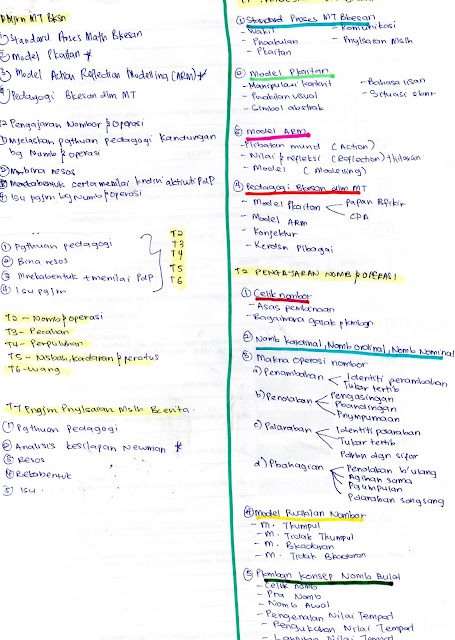 PMjrn MT Bksn
① Standard Proses Math Bkesan
② Model Pkaitan *
③ Model Action Reflection Modelling (ARM) *
④ Pedagogi Bkesan dlm MT
T2 Pengajaran Nombor & Operasi
① Mjelaskan pgthuan pedagogi kandungan
bg Numb & operasi
② Mmbina resos
③ Mrekabentuk serta menilai kndm aktiviti PdP
④ Isu pgjrn bg Numb & operasi
① Pgthuan pedagogi
② Bina resos
③ Mrekabentuk + menilai PdP
④ Isu pgjrn
T2
T3
T4
T5
T6
T2 - Nomb & operasi
T3 - Pecahan
T4 - Perpuluhan
T5 - Nisbah, kadaran & peratus
T6 - Wang
T7 Pngjrn Pnylsaian Mslh Bcerita
① Pgthuan pedagogi
② Analisis kesilapan Newman *
③ Resos
④ Rekabentuk
⑤ Isu
① Standard Proses MT Bkesan
- Wakil
- Pnaakulan
- Pkaitan
- Komunikasi
- Pnylsaian Mslh
② Model Pkaitan
- Manipulasi konkrit
- Pwakilan visual
- Simbol abstrak
- Bahasa lisan
- Situasi sbnr
③ Model ARM
- Plibatan murid (Action)
- Nilai & refleksi (Reflection)
- Model (Modelling)
④ Pedagogi Bkesan dlm MT
- Model Pkaitan
Papan Bfikir
CPA
- Model ARM
- Konjektur
- Kerdsn Plbagai
T2 PENGAJARAN NOMB & OPERASI
① Celik nombor
- Asas pembinaan
- Bagaimana galak pkmbgn
② Nomb Kardinal, Nomb Ordinal, Nomb Nominal
③ Makna Operasi nombor
a) Penambahan
Identiti penambahan
Tukar tertib
b) Penolakan
Pengasingan
Pbandingan
Pnyempurnaan
c) Pdaraban
Identiti pdaraban
Tukar tertib
Pdrbn dgn sifar
d) Pbahagian
Penolakan b'ulang
Agihan sama
Pgumpulan
Pdaraban songsang
④ Model Pwakilan Nombor
- M. Tkumpul
- M. Tidak Tkumpul
- M. Bkadaran
- M. Tidak Bkadaran
⑤ Pkmbgn Konsep Nomb Bulat
- Celik nomb
- Pra Nomb
- Nomb Awal
- Pengenalan Nilai Tempat
- Pengukuhan Nilai Tempat